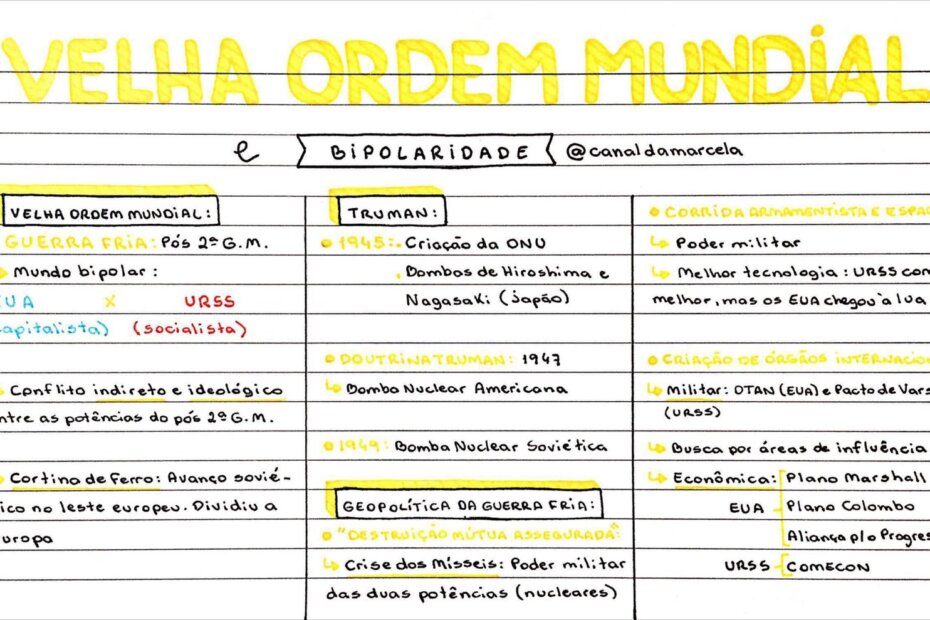 VELHA ORDEM MUNDIAL
e BIPOLARIDADE @canaldamarcela
VELHA ORDEM MUNDIAL:
GUERRA FRIA: Pós 2ª G.M.
Mundo bipolar:
EUA X URSS
(capitalista) (socialista)
Conflito indireto e ideológico
entre as potências do pós 2ª G.M.
Cortina de Ferro: Avanço sovié-
tico no leste europeu. Dividiu a
Europa
TRUMAN:
1945: Criação da ONU
Bombas de Hiroshima e
Nagasaki (Japão)
DOUTRINA TRUMAN: 1947
Bomba Nuclear Americana
1949: Bomba Nuclear Soviética
GEOPOLÍTICA DA GUERRA FRIA:
"DESTRUIÇÃO MÚTUA ASSEGURADA":
Crise dos Mísseis: Poder militar
das duas potências (nucleares)
CORRIDA ARMAMENTISTA E ESPA
Poder militar
Melhor tecnologia: URSS com
melhor, mas os EUA chegou à lua
CRIAÇÃO DE ÓRGÃOS INTERNACION
Militar: OTAN (EUA) e Pacto de Vars
(URSS)
Busca por áreas de influência
Econômica: Plano Marshall
EUA Plano Colombo
Aliança p/o Progres
URSS COMECON